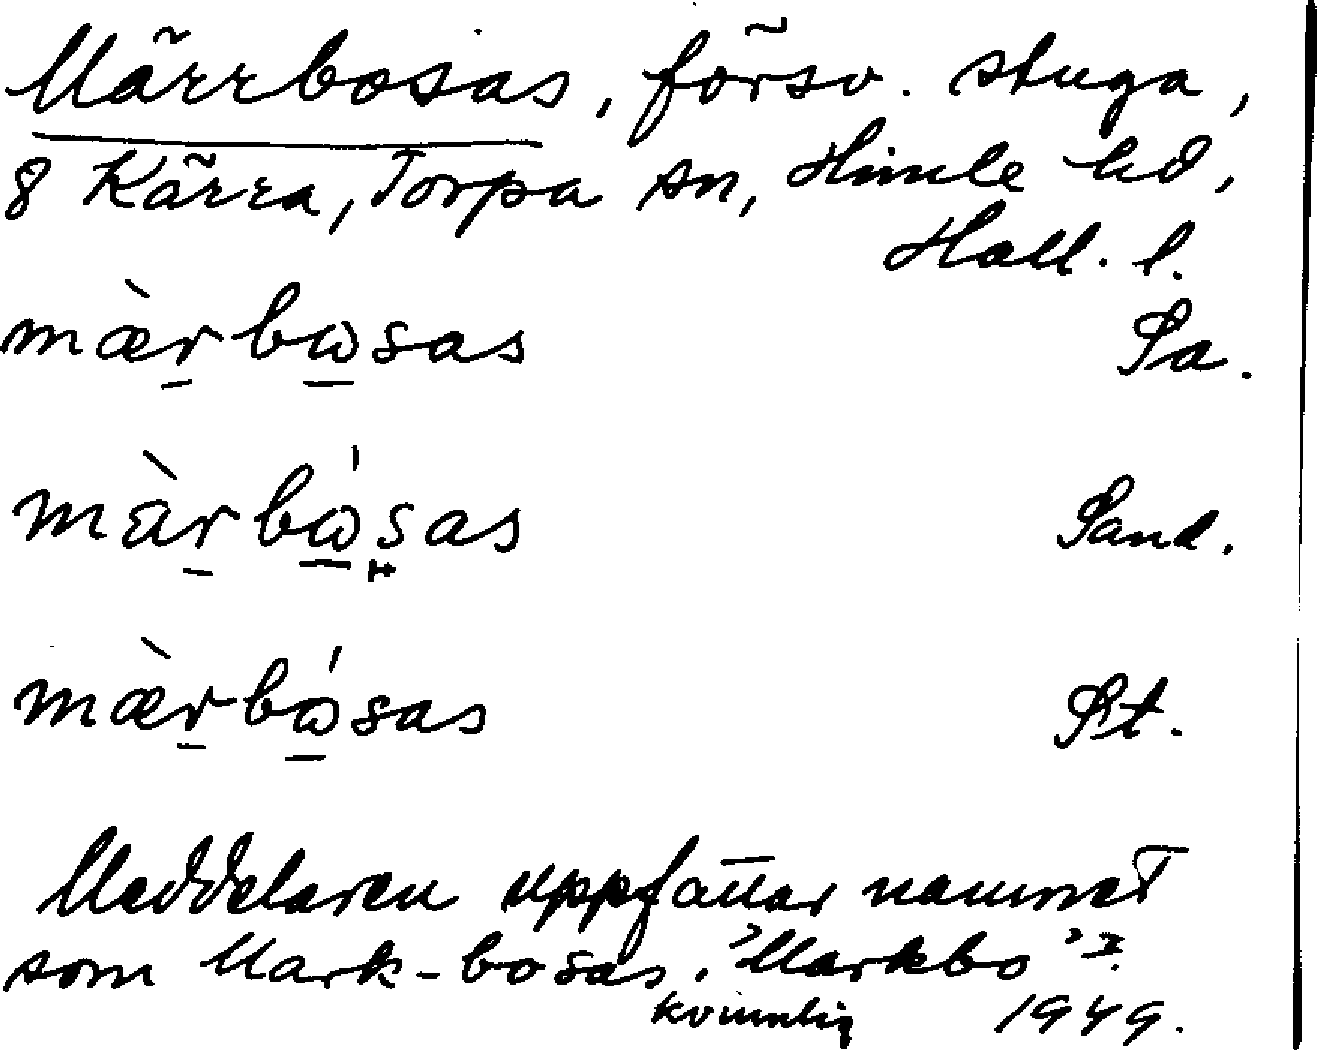 Märrbosas, försv. stuga,
8 Kärra, Torpa sn, Himle hd,
Hall. l.
mæ̀r̠bω̠sas Sa.
màr̠bώ̠sas Sand.
mæ̀r̠bώ̠sas St.
Meddelaren uppfattar namnet
som Mark-bosas. "Markbo"
kvinnlig 1949.